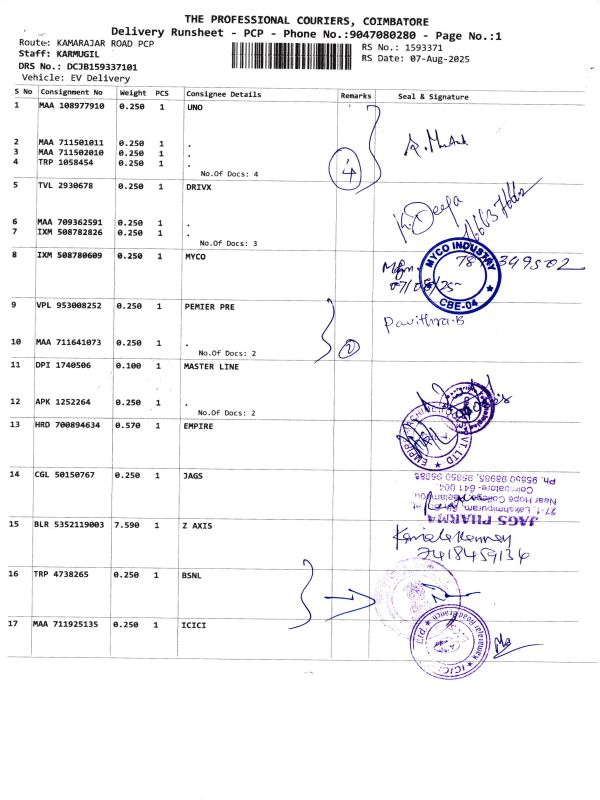 THE PROFESSIONAL COURIERS, COIMBATORE
Delivery Runsheet - PCP - Phone No.:9047080280 - Page No.:1
Route: KAMARAJAR ROAD PCP
RS No.: 1593371
Staff: KARMUGIL
RS Date: 07-Aug-2025
DRS No.: DCJB159337101
Vehicle: EV Delivery
S No Consignment No Weight PCS Consignee Details Remarks Seal & Signature
1 MAA 108977910 0.250 1 UNO
2 MAA 711501011 0.250 1 .
3 MAA 711502010 0.250 1 .
4 TRP 1058454 0.250 1 .
No.Of Docs: 4
4
5 TVL 2930678 0.250 1 DRIVX
K. Deepa
6 MAA 709362591 0.250 1 .
7 IXM 508782826 0.250 1 .
No.Of Docs: 3
8 IXM 508780609 0.250 1 MYCO
MYCO INDUSTRY
CBE-04
07/08/25
9 VPL 953008252 0.250 1 PEMIER PRE
Pavithra.B
10 MAA 711641073 0.250 1 .
No.Of Docs: 2
2
11 DPI 1740506 0.100 1 MASTER LINE
12 APK 1252264 0.250 1 .
No.Of Docs: 2
13 HRD 700894634 0.570 1 EMPIRE
14 CGL 50150767 0.250 1 JAGS
JAGS PHARMA
27-1, Lakshmipuram,
Near Hope College,
Coimbatore- 641 004.
15 BLR 5352119003 7.590 1 Z AXIS
7418459134
16 TRP 4738265 0.250 1 BSNL
17 MAA 711925135 0.250 1 ICICI